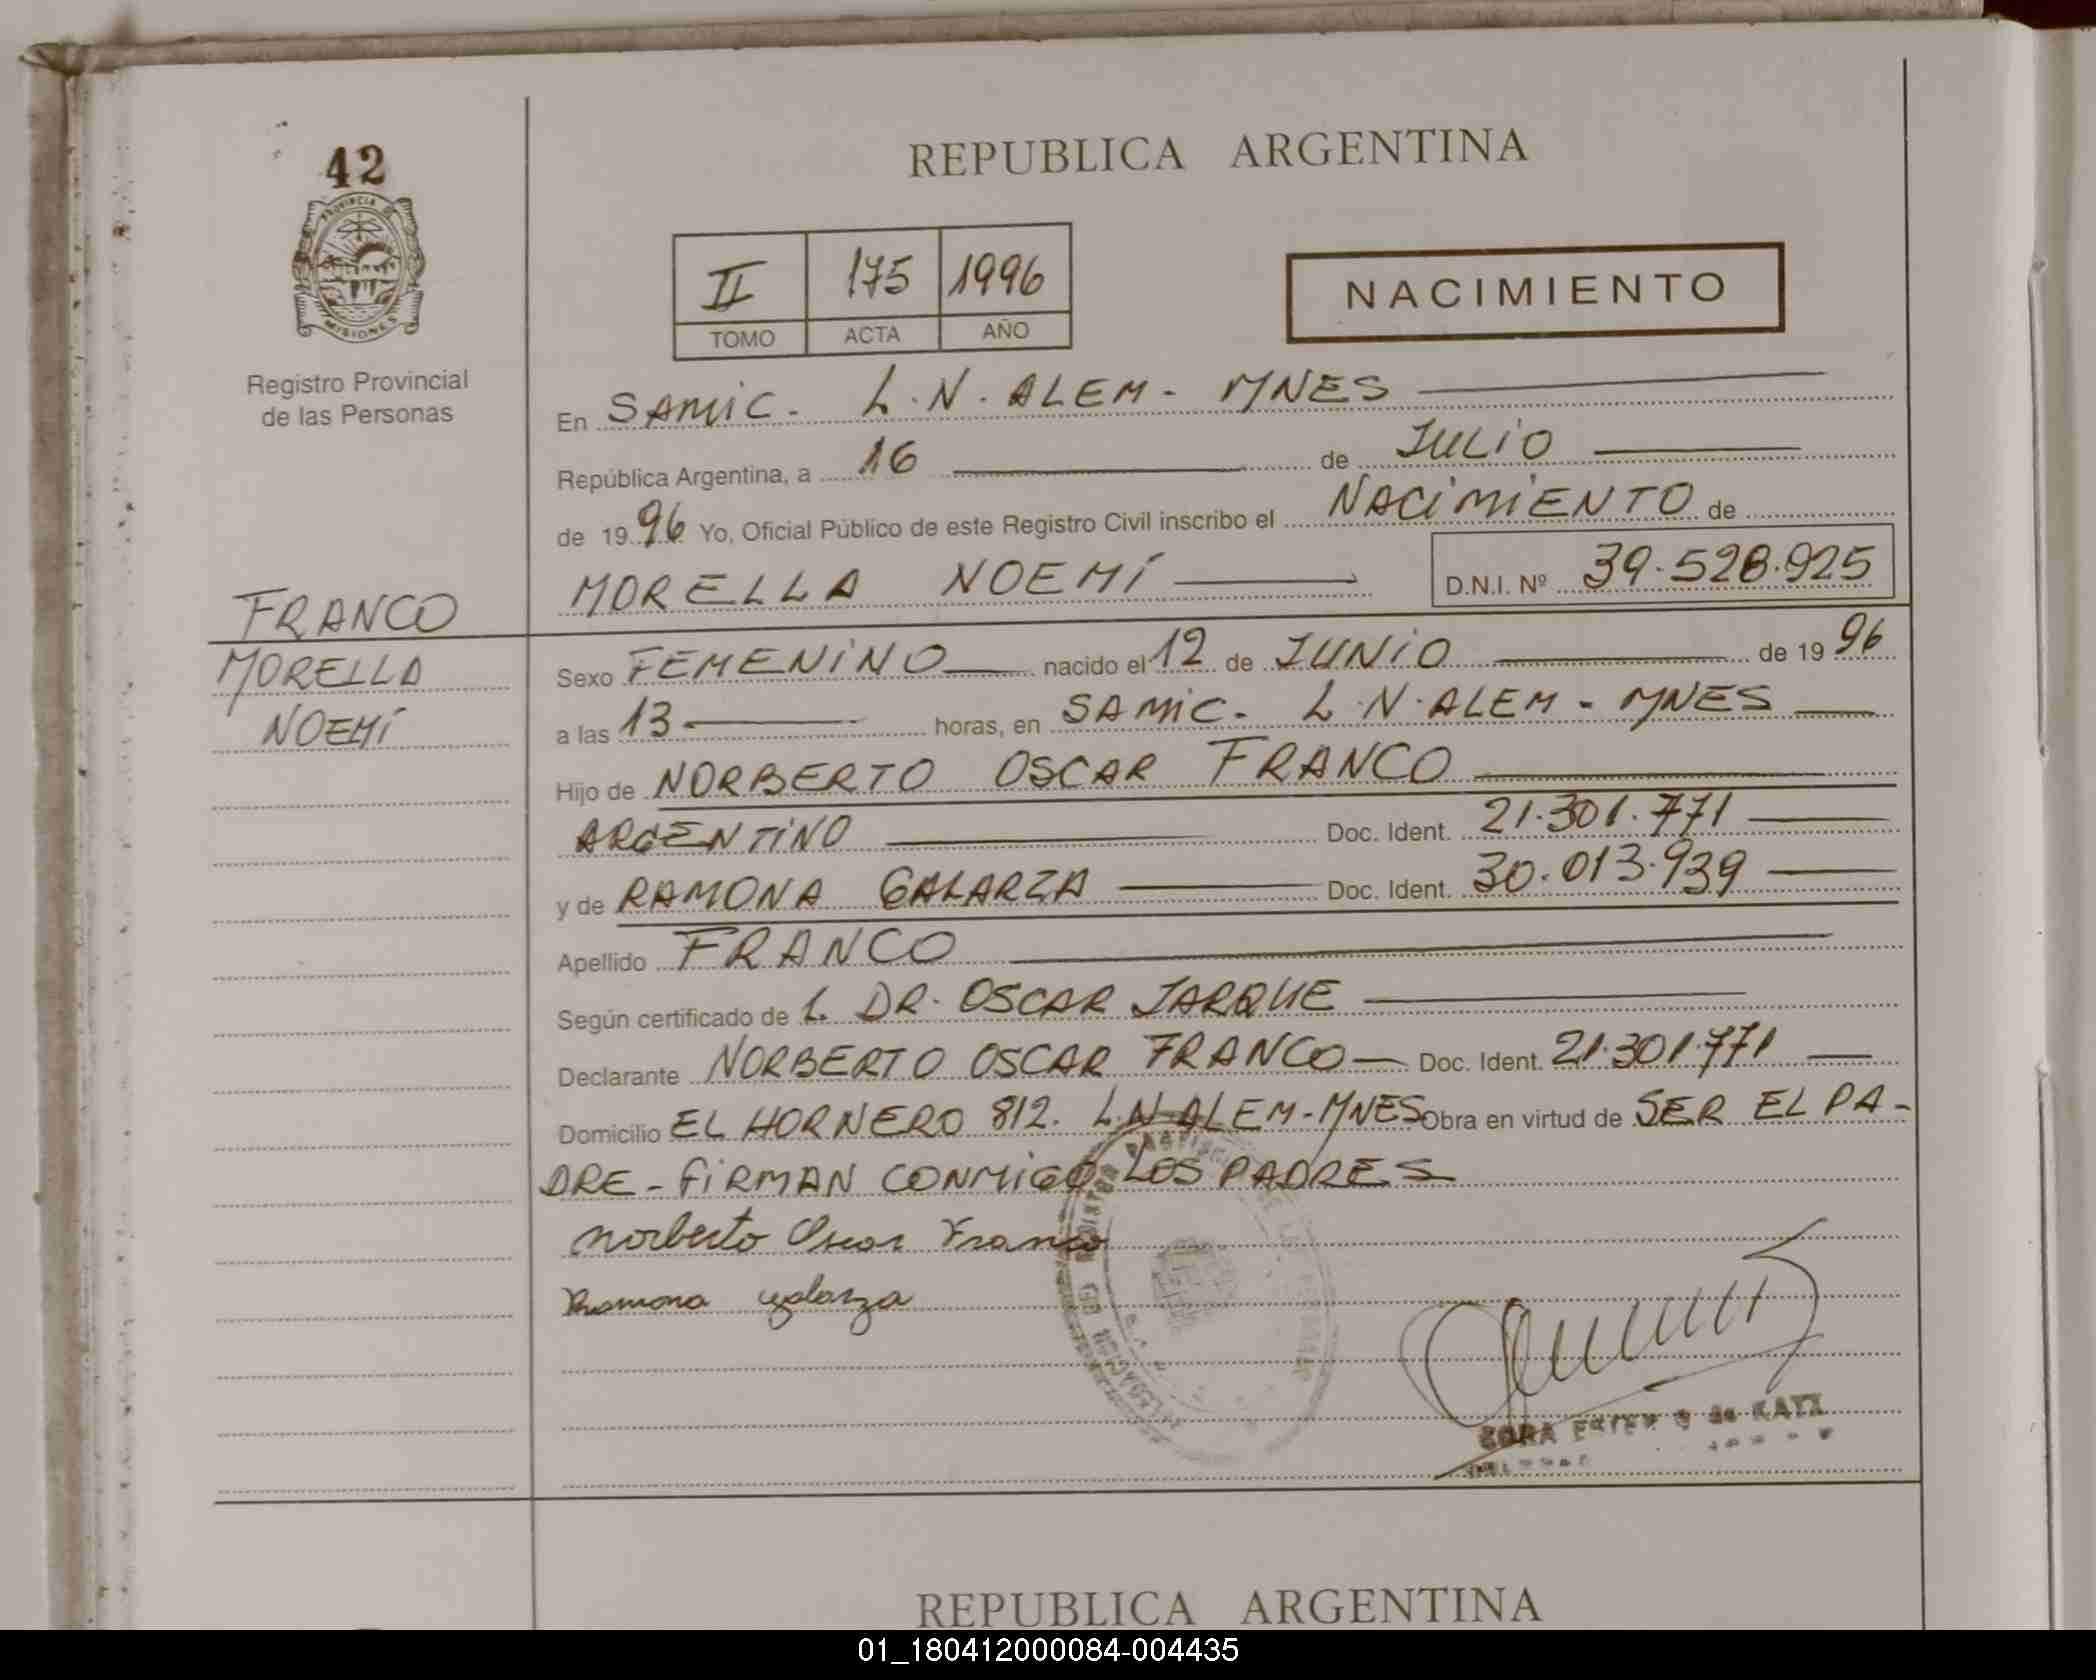 REPUBLICA ARGENTINA
42
PROVINCIA DE
MISIONES
II 175 1996
TOMO ACTA AÑO
NACIMIENTO
Registro Provincial
de las Personas
En SAMIC. L.N. ALEM - MNES
República Argentina, a 16 de JULIO
de 1996 Yo, Oficial Público de este Registro Civil inscribo el NACIMIENTO de
MORELLA NOEMÍ D.N.I. Nº 39.528.925
FRANCO
MORELLA
NOEMÍ
Sexo FEMENINO nacido el 12 de JUNIO de 1996
a las 13 horas, en SAMIC. L.N. ALEM - MNES
Hijo de NORBERTO OSCAR FRANCO
ARGENTINO Doc. Ident. 21.301.771
y de RAMONA GALARZA Doc. Ident. 30.013.939
Apellido FRANCO
Según certificado de L. DR. OSCAR JARQUE
Declarante NORBERTO OSCAR FRANCO Doc. Ident. 21.301.771
Domicilio EL HORNERO 812. L.N ALEM - MNES Obra en virtud de SER EL PA-
DRE - FIRMAN CONMIGO LOS PADRES
Norberto Oscar Franco
Ramona galarza
REPUBLICA ARGENTINA
01_180412000084-004435